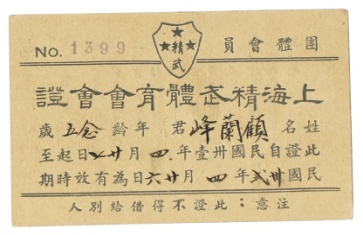 No. 1399
精武
團體會員
上海精武體育會會證
姓名 顧蘭峰 君 年齡 念五 歲
此證自民國卅壹年四月廿七日起至
民國卅弍年四月廿六日為有效時期
注意：此證不得借給別人